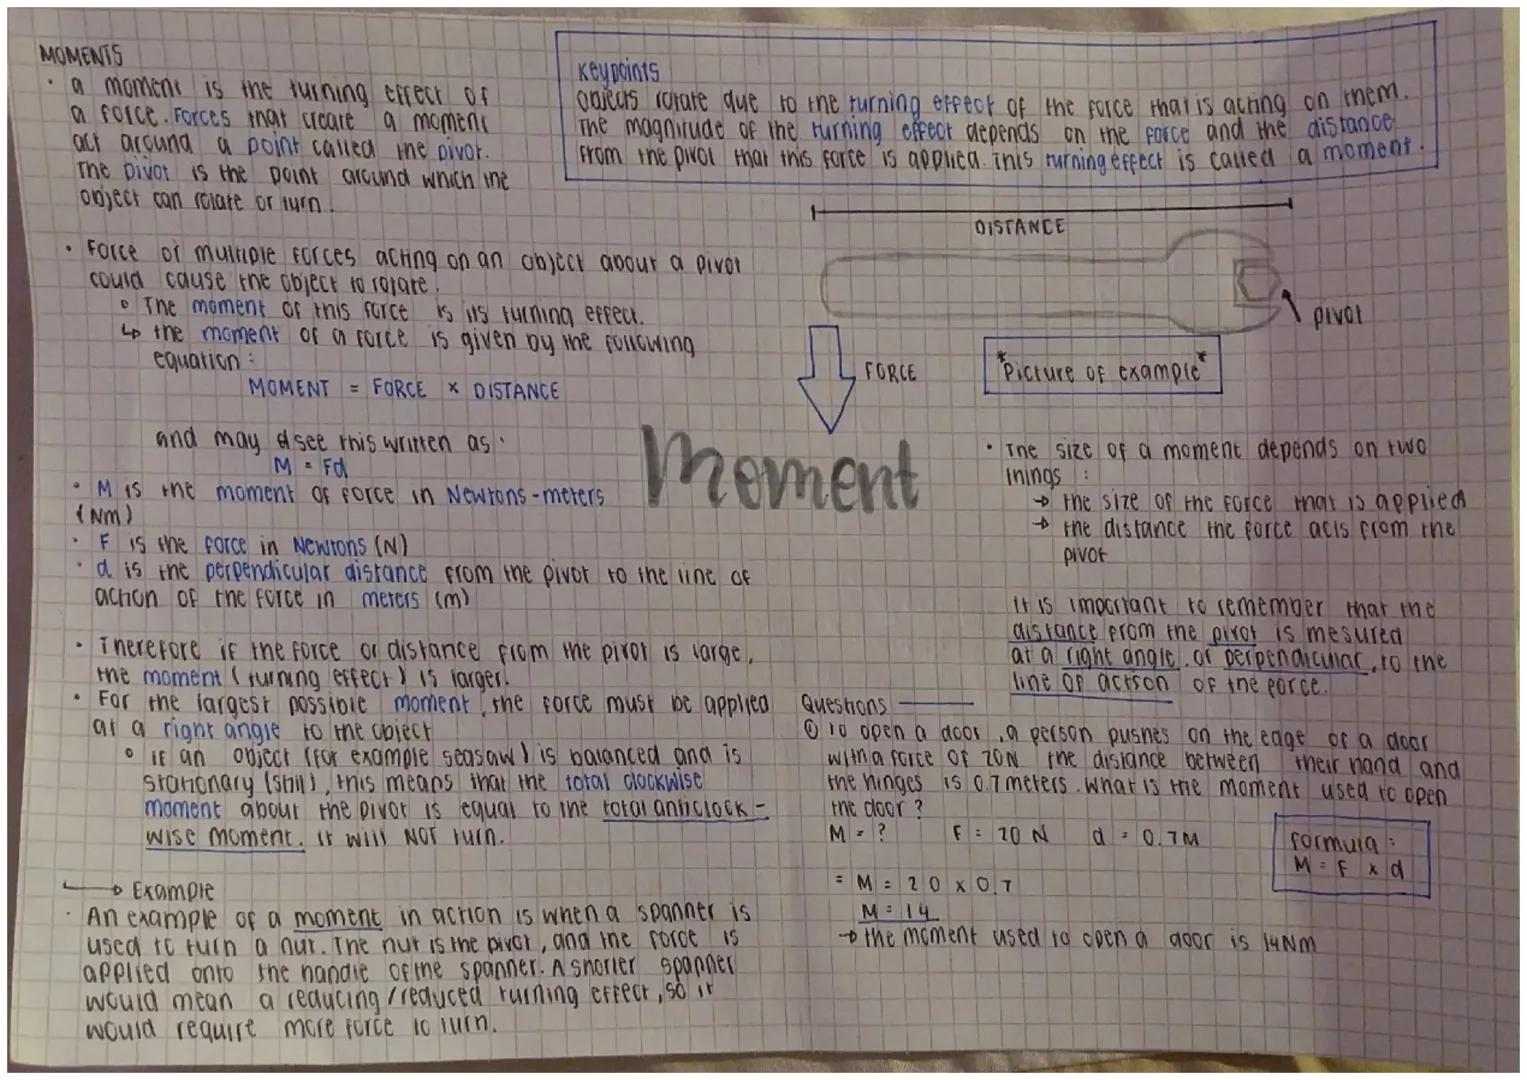 MOMENTS
· a moment is the turning effect of
a force. Forces that create a moment
act around a point called the pivot.
The pivot is the point around which the
object can rotate or turn.
Keypoints
Objects rotate due to the turning effect of the force that is acting on them.
The magnitude of the turning effect depends on the force and the distance
from the pivot that this force is applied. This turning effect is called a moment.
DISTANCE
pivot
FORCE
*Picture of example*
· Force or multiple forces acting on an object about a pivot
could cause the object to rotate.
∘ The moment of this force is its turning effect.
↳ the moment of a force is given by the following
equation:
MOMENT = FORCE × DISTANCE
and may see this written as:
M = Fd
· M is the moment of force in Newtons-meters
(Nm)
· F is the force in Newtons (N)
· d is the perpendicular distance from the pivot to the line of
action of the force in meters (m)
Moment
· The size of a moment depends on two
things:
→ the size of the force that is applied
→ the distance the force acts from the
pivot
it is important to remember that the
distance from the pivot is mesured
at a right angle, or perpendicular, to the
line of action of the force.
· Therefore if the force or distance from the pivot is large,
the moment (turning effect) is larger.
· For the largest possible moment, the force must be applied
at a right angle to the object
∘ if an object (for example seasaw) is balanced and is
stationary (still), this means that the total clockwise
moment about the pivot is equal to the total anticlock-
wise moment. It will NOT turn.
→ Example
· An example of a moment in action is when a spanner is
used to turn a nut. The nut is the pivot, and the force is
applied onto the handle of the spanner. A shorter spanner
would mean a reducing/reduced turning effect, so it
would require more force to turn.
Questions
① To open a door, a person pushes on the edge of a door
with a force of 20N the distance between their hand and
the hinges is 0.7 meters. What is the moment used to open
the door?
M = ? F = 20 N d = 0.7M
Formula:
M = F × d
= M = 20 × 0.7
M = 14
→ the moment used to open a door is 14Nm